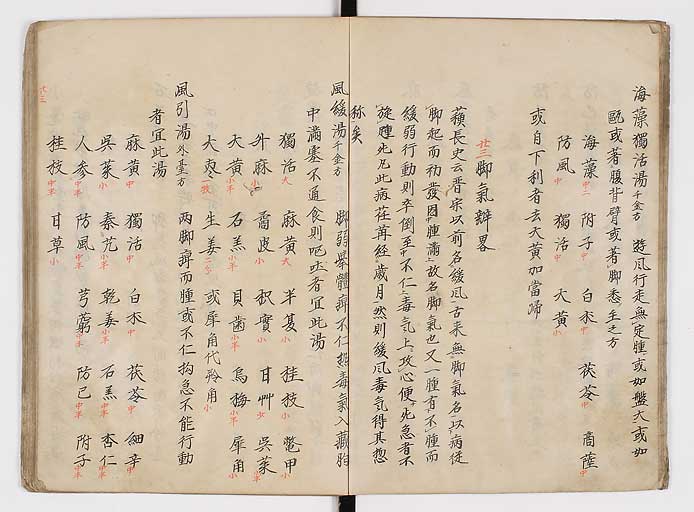 海藻獨活湯千金方 遊風行走無定腫或如盤大或如
甌或著腹背臂或著脚悉主之方
海藻中二 附子中 白朮中 茯苓中 商陸中
防風中 獨活中 大黄小
或自下利者去大黄加當歸
廿三脚氣辨畧
蘓長史云晋宋以前名緩風古来無脚氣名以病従
脚起而初發因腫滿故名脚氣也又一腫有不腫而
緩弱行動則卒倒至中不仁毒氣上攻心便死急者不
旋踵死凡此病在苒経歳月然則緩風毒氣得其惣
称矣
風緩湯千金方 脚弱舉體痺不仁熱毒氣入藏胸
中滿塞不通食則嘔吐者宜此湯
獨活大 麻黄大 半夏小 桂枝小 鼈甲小
升麻小 橘皮小 枳實小 甘艸少 吳茱小羊
大黄小羊 石羔小羊 貝歯小羊 烏梅小羊 犀角小
大枣一枚 生姜二分 或犀角代羚角小
風引湯外臺方 両脚痺而腫或不仁拘急不能行動
者宜此湯
麻黄中 獨活中 白朮中 茯苓中 細辛中
吳茱小 秦艽小 乾姜小羊 石羔中羊 杏仁小羊
人参中羊 防風中羊 芎藭小羊 防已中羊 附子中羊
桂枝中羊 甘草小
廿三